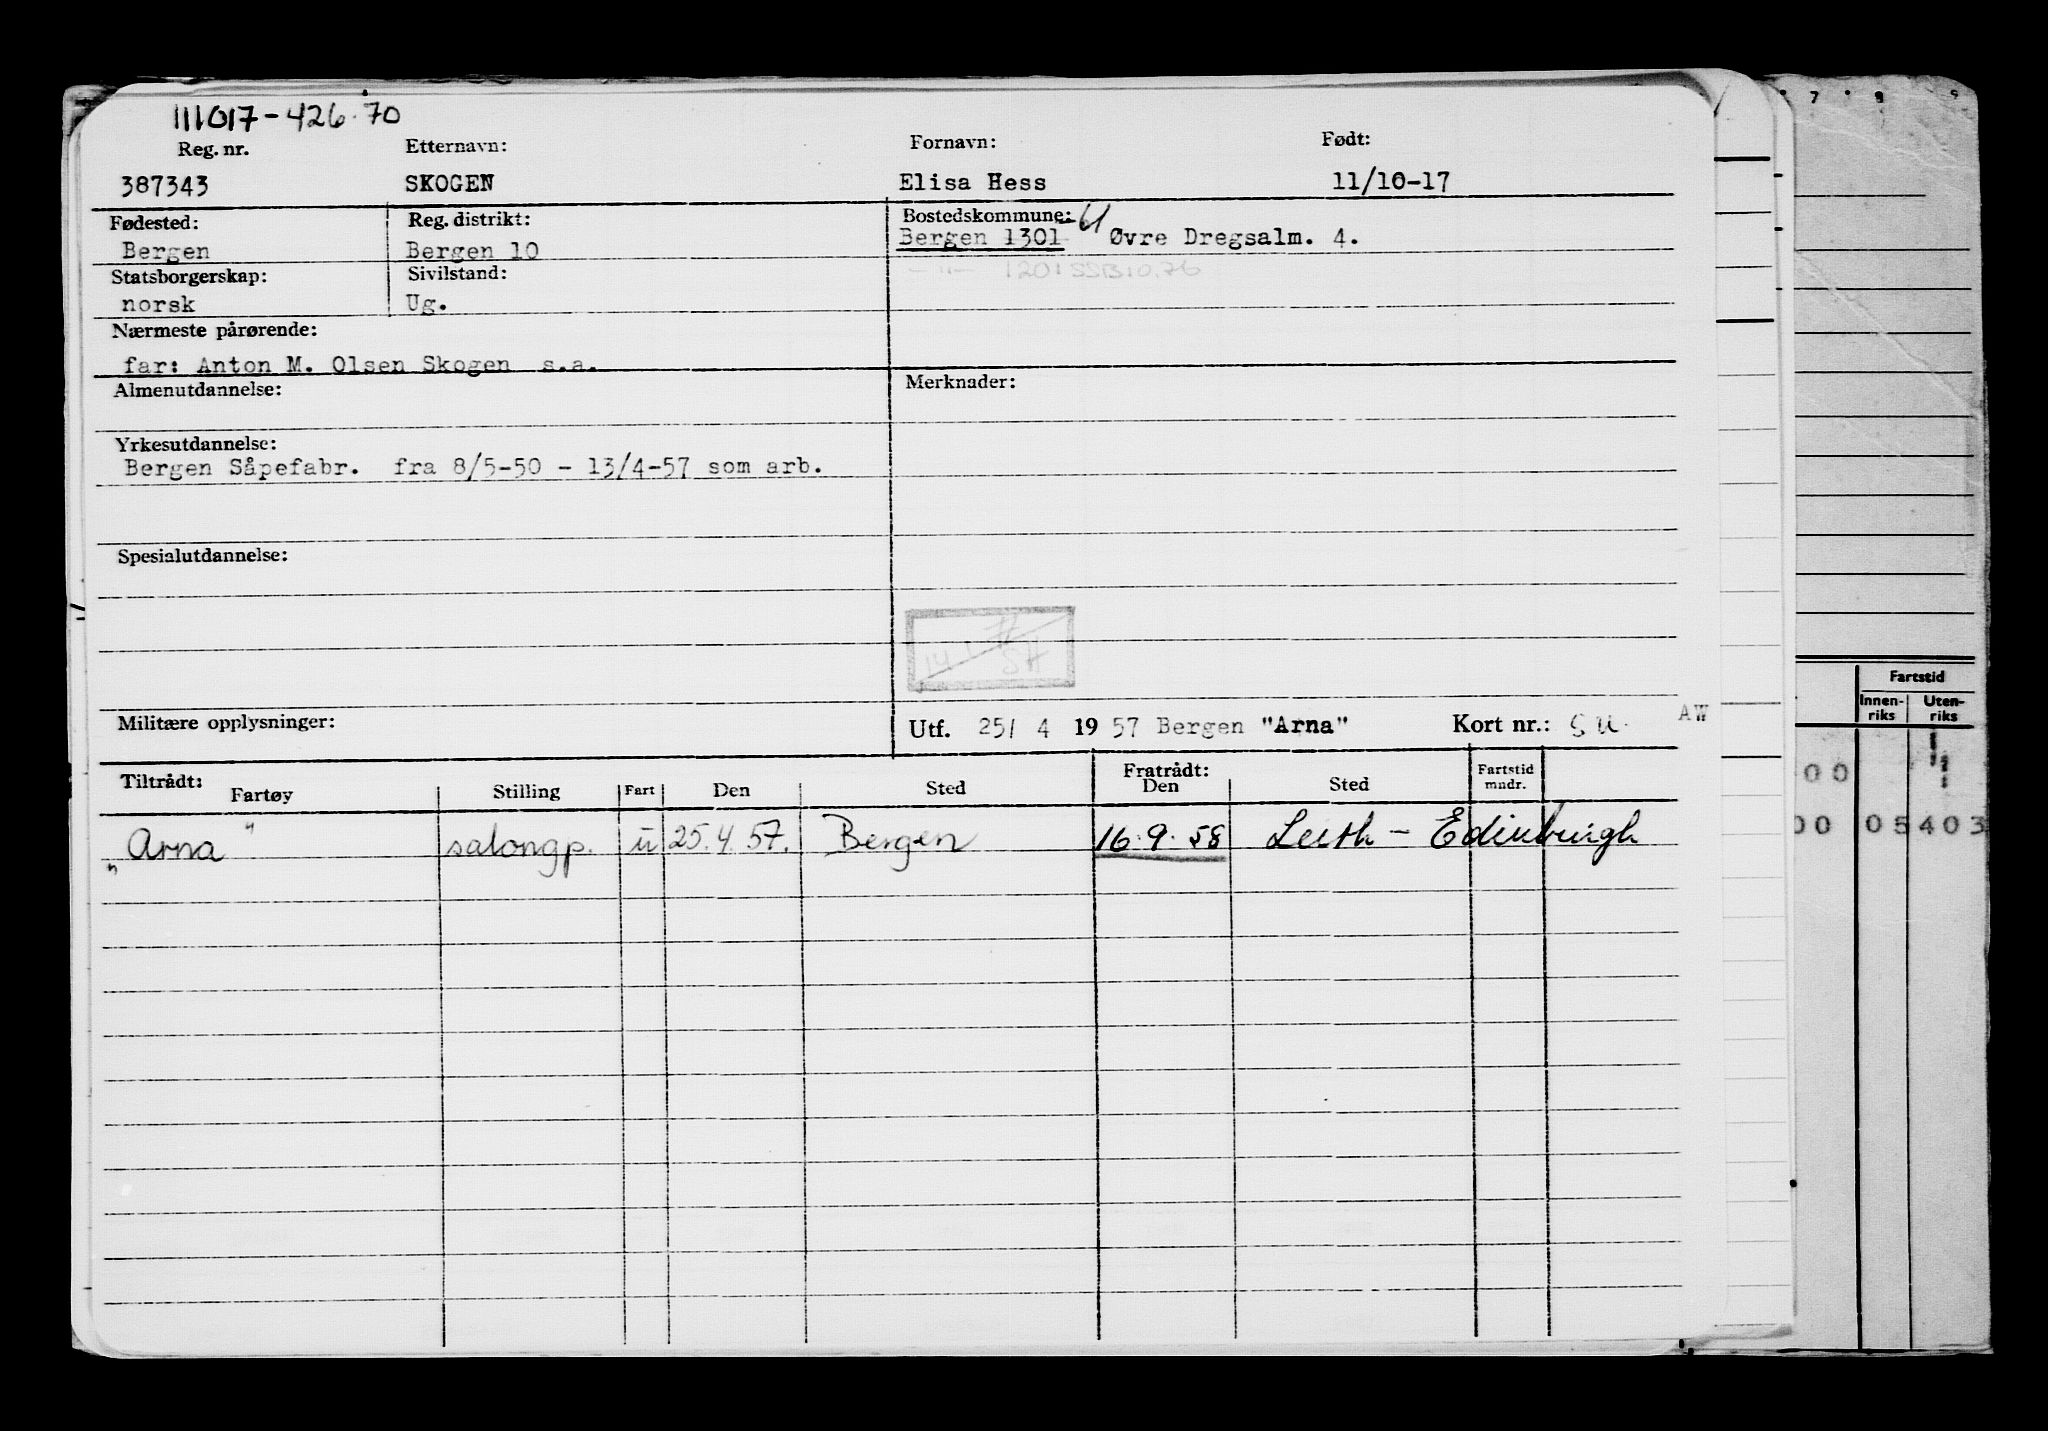 111017-426.70
Reg. nr. Etternavn: Fornavn: Født:
387343 SKOGEN Elisa Hess 11/10-17
Fødested: Reg. distrikt: Bostedskommune:
Bergen Bergen 10 Bergen 1301 Øvre Dregsalm. 4.
Statsborgerskap: Sivilstand: -"- 1201 SSB 10.76
norsk Ug.
Nærmeste pårørende:
far: Anton M. Olsen Skogen s.a.
Almenutdannelse: Merknader:
Yrkesutdannelse:
Bergen Såpefabr. fra 8/5-50 - 13/4-57 som arb.
Spesialutdannelse:
Militære opplysninger: Utf. 25/ 4 1957 Bergen "Arna" Kort nr.: AW
Tiltrådt: Fratrådt:
Fartøy Stilling Fart Den Sted Den Sted Fartstid mndr.
"Arna" salongp. u 25.4.57. Bergen 16.9.58 Leith - Edinburgh
7 8 9
Fartstid
Innen-riks Uten-riks
00
00 05 403